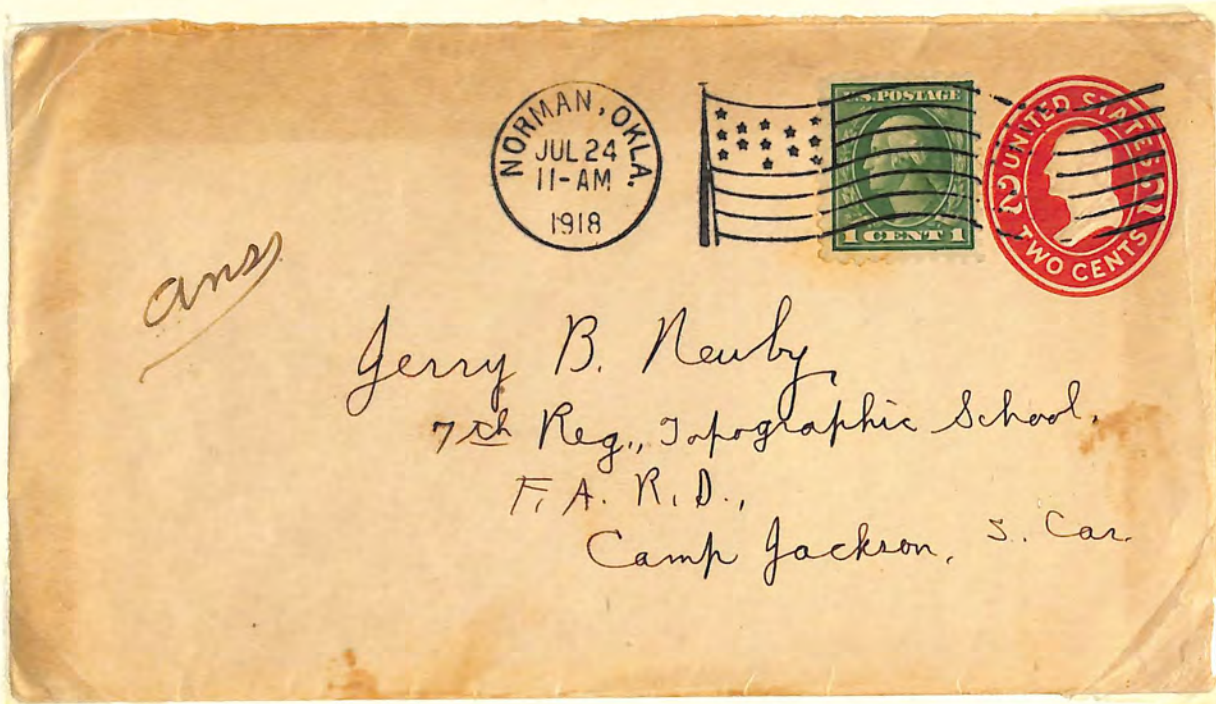 NORMAN, OKLA.
JUL 24
11-AM
1918
U.S. POSTAGE
1 CENT 1
UNITED STATES
2 2
TWO CENTS
ans
Jerry B. Newby
7th Reg., Topographic School,
F. A. R. D.,
Camp Jackson, S. Car.